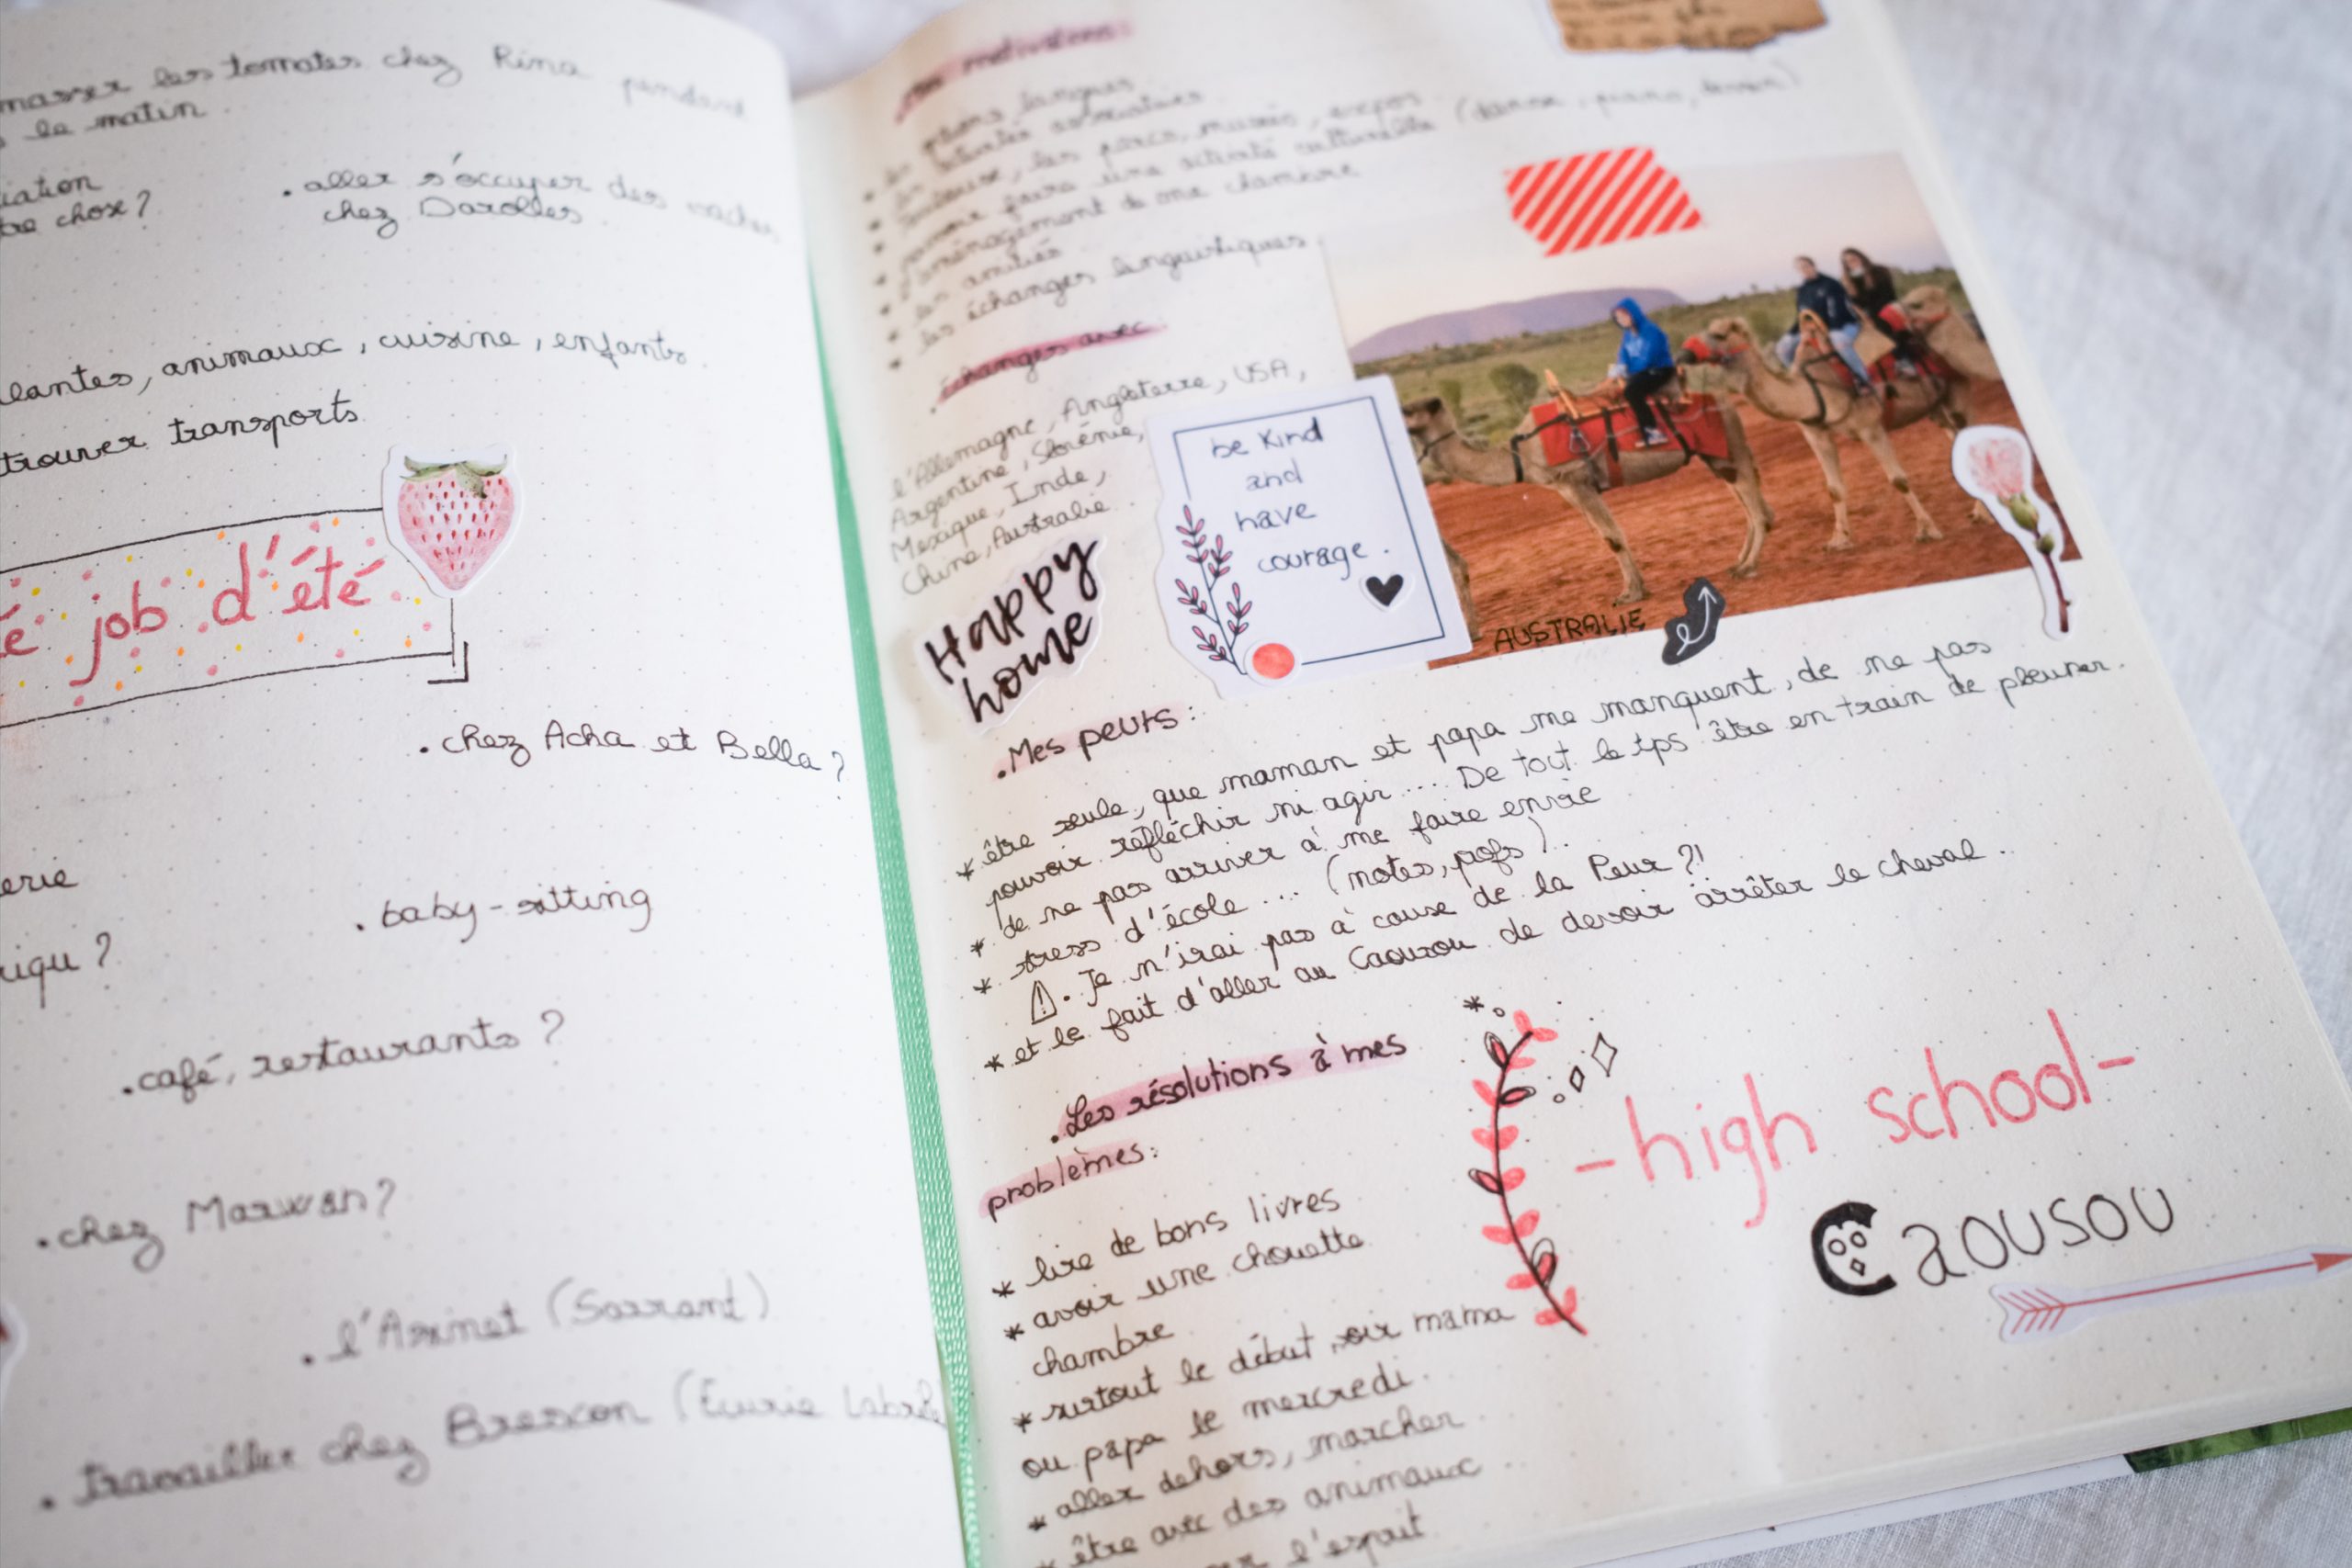 les tomates chez Rina pendant
le matin.
chose ?
. aller s'occuper des vaches
chez Darolles.
animaux, cuisine, enfants.
trouver transports
job d'été
. chez Acha et Bella ?
. baby-sitting
. café, restaurants ?
. chez Marwan ?
. l'Arinet (Sarrant)
. travailler chez Brescon (Ecurie
motivations :
langues
les parcs, musées, expos
faire une activité culturelle (danse, piano, dessin)
aménagement de ma chambre
. les amitiés
. les échanges linguistiques
. échanges avec
l'Allemagne, Angleterre, USA,
Argentine, Slovénie,
Mexique, Inde,
Chine, Australie.
Happy
home
be kind
and
have
courage.
AUSTRALIE
. Mes peurs :
* être seule, que maman et papa me manquent, de ne pas
pouvoir réfléchir ni agir.... De tout le tps être en train de pleurer.
* de ne pas arriver à me faire envie
* stress d'école ... (notes, profs)..
⚠. Je n'irai pas à cause de la Peur ?!
* et le fait d'aller au Caousou de devoir arrêter le cheval.
. Les résolutions à mes
problèmes :
* lire de bons livres
* avoir une chouette
chambre
* surtout le début, voir mama
ou papa le mercredi.
* aller dehors, marcher
* être avec des animaux
l'esprit
-high school-
Caousou